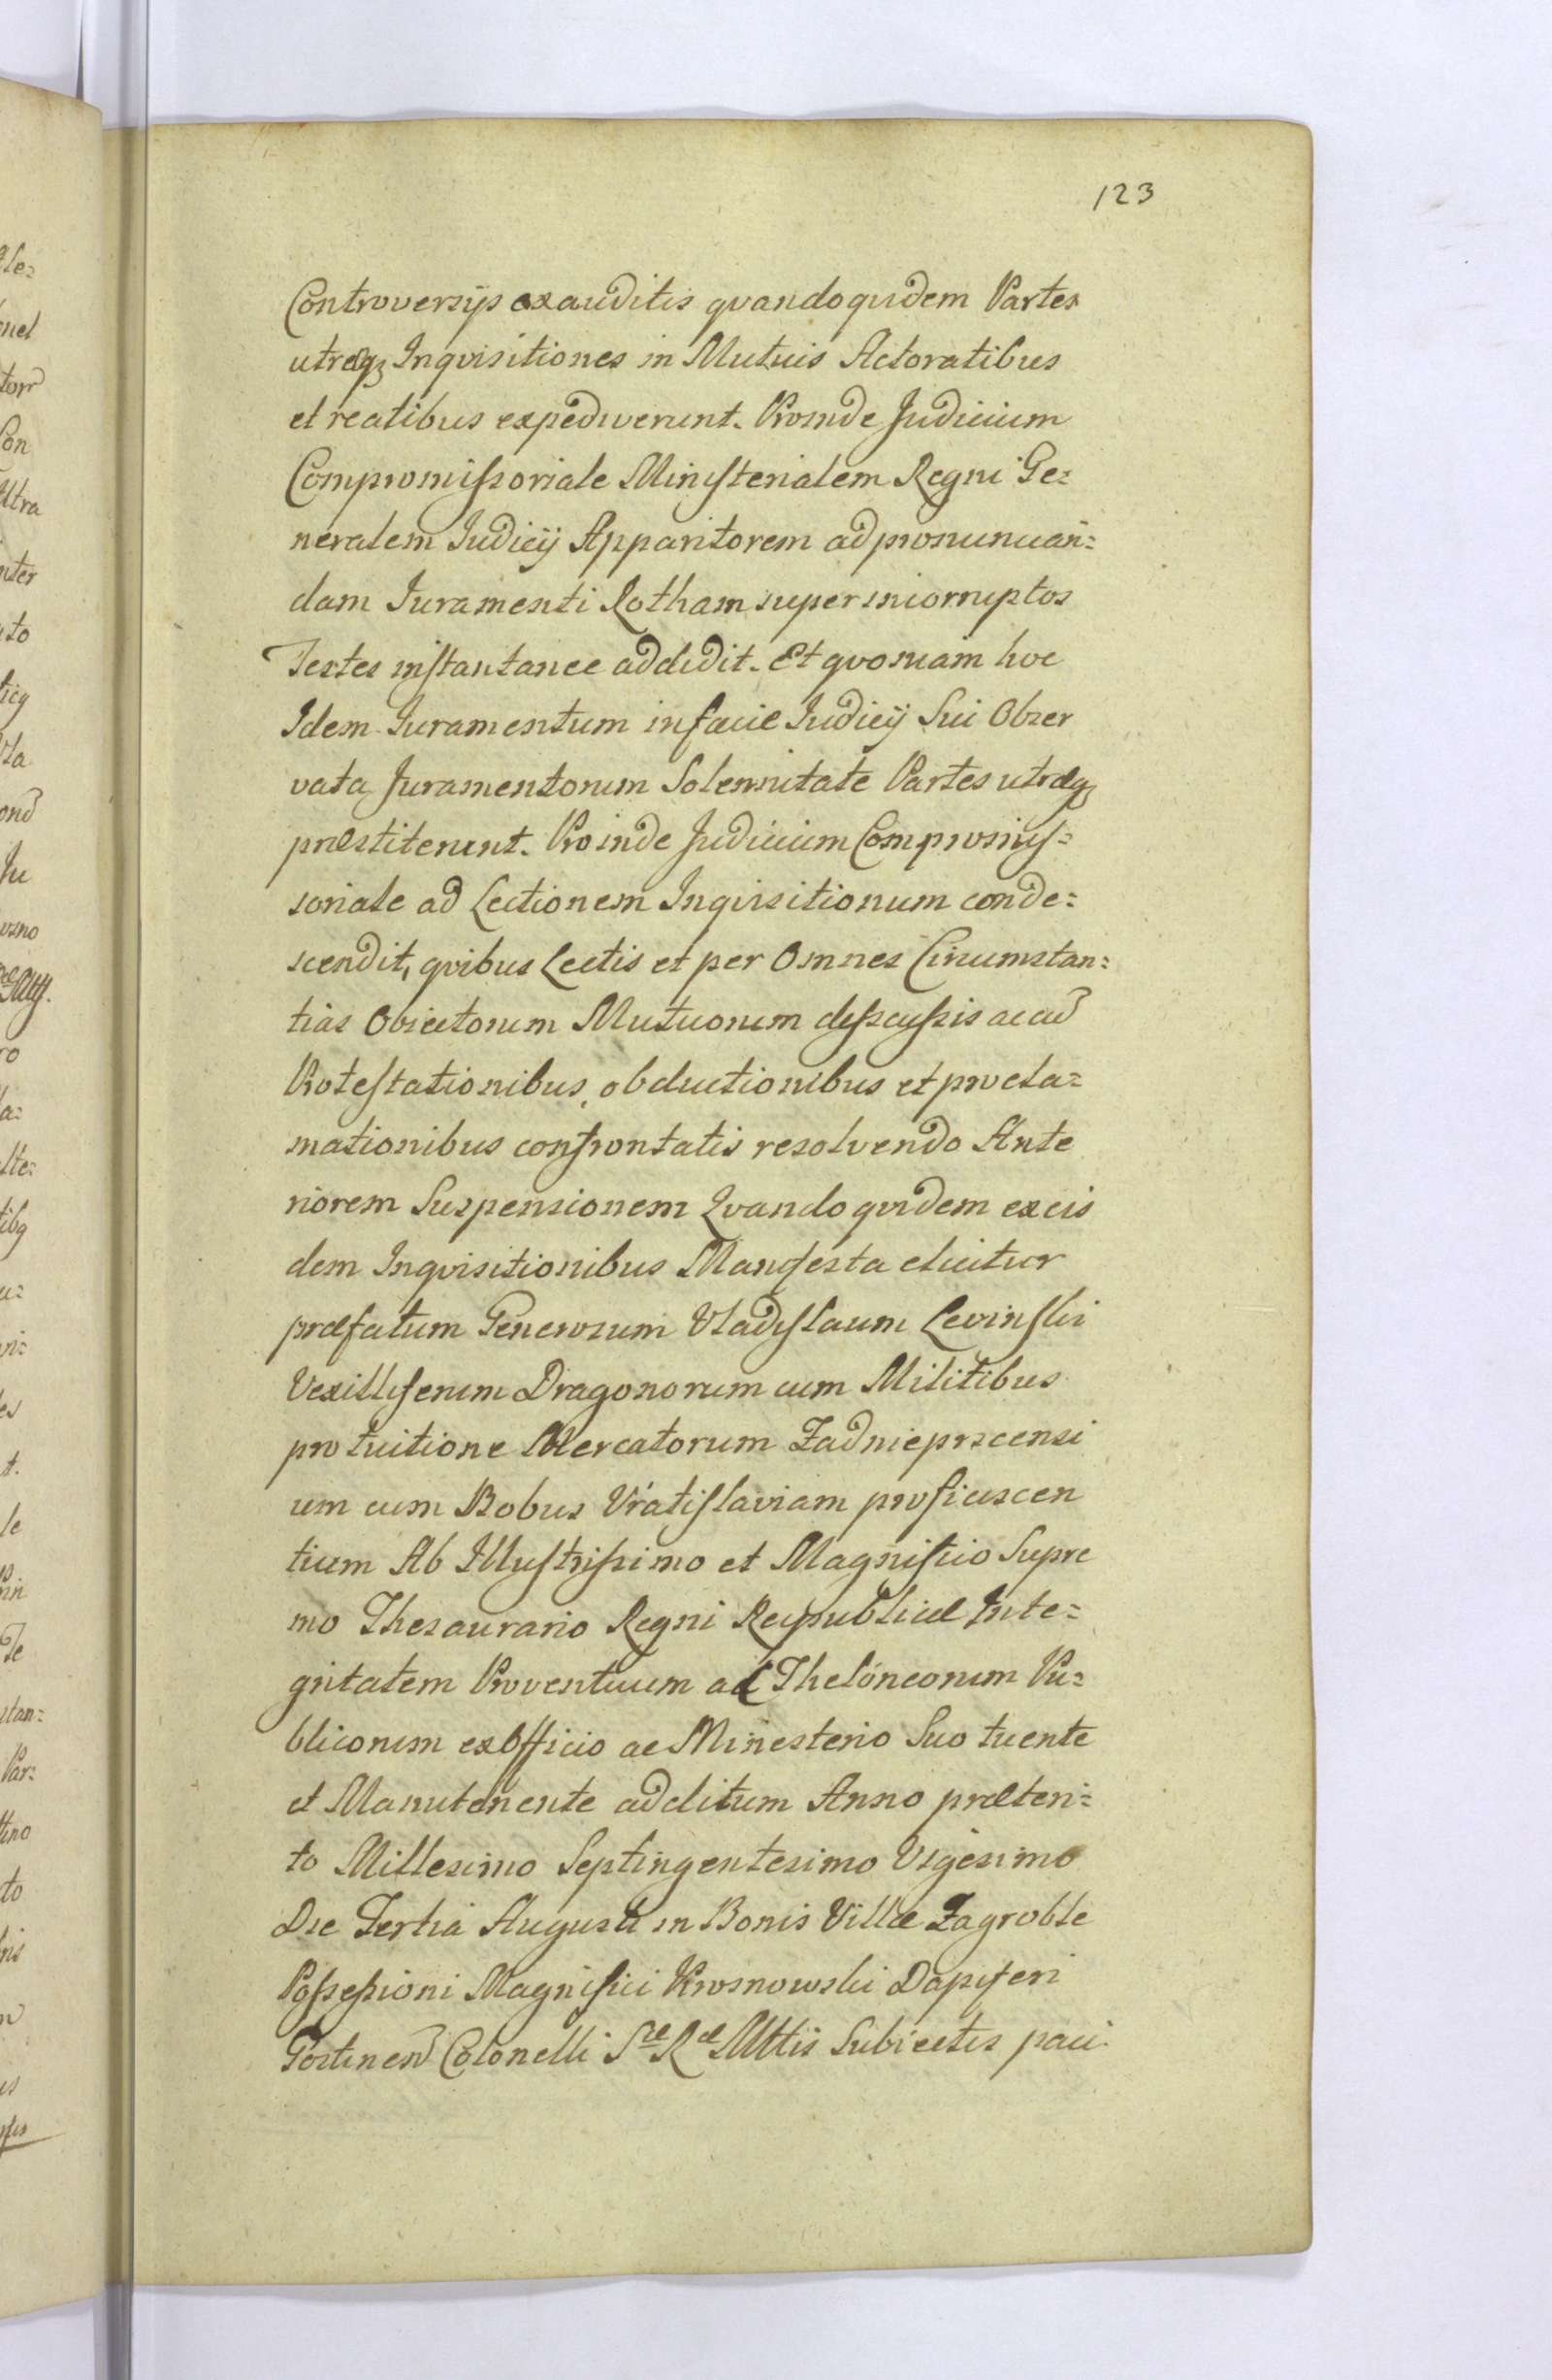 123
Controversijs exauditis qvandoqvidem Partes
utræq₃ Inqvisitiones in Mutuis Actoratibus
et reatibus expediverunt. Proinde Judicium
Compromissoriale Ministerialem Regni Ge=
neralem Judicij Apparitorem ad pronunciañ=
dam Juramenti Rotham super incorruptos
Testes instantanee addidit. Et qvoniam hoc
Idem Juramentum in facie Judicij Sui Obser
vata Juramentorum Solennitate Partes utræq₃
præstiterunt. Proinde Judicium Compromis=
soriale ad Lectionem Inqvisitionum conde=
scendit, qvibus Lectis et per Omnes Circumstan=
tias Obiectorum Mutuorum discussis ac cũ
Protestationibus, obductionibus et procla=
mationibus confrontatis resolvendo Ante
riorem Suspensionem Qvandoqvidem ex eis
dem Inqvisitionibus Manifesta elicitur
præfatum Generosum Vladislaum Levinski
Vexilliferum Dragonorum cum Militibus
pro tuitione Mercatorum Zadnieprscensi
um cum Bobus Vratislaviam proficiscen
tium Ab Illustrissimo et Magnifico Supre
mo Thesaurario Regni Reipublicæ Inte=
gritatem Proventuum ac Theloneorum Pu=
blicorum ex Officio ac Minesterio Suo tuente
et Manutenente additum Anno præteri=
to Millesimo Septingentesimo Vigesimo
Die Tertia Augusti in Bonis Villæ Zagroble
Possessioni Magnifici Krosnowski Dapiferi
Gostinen̄ Colonelli Sæ Ræ Mttis Subiectis paci